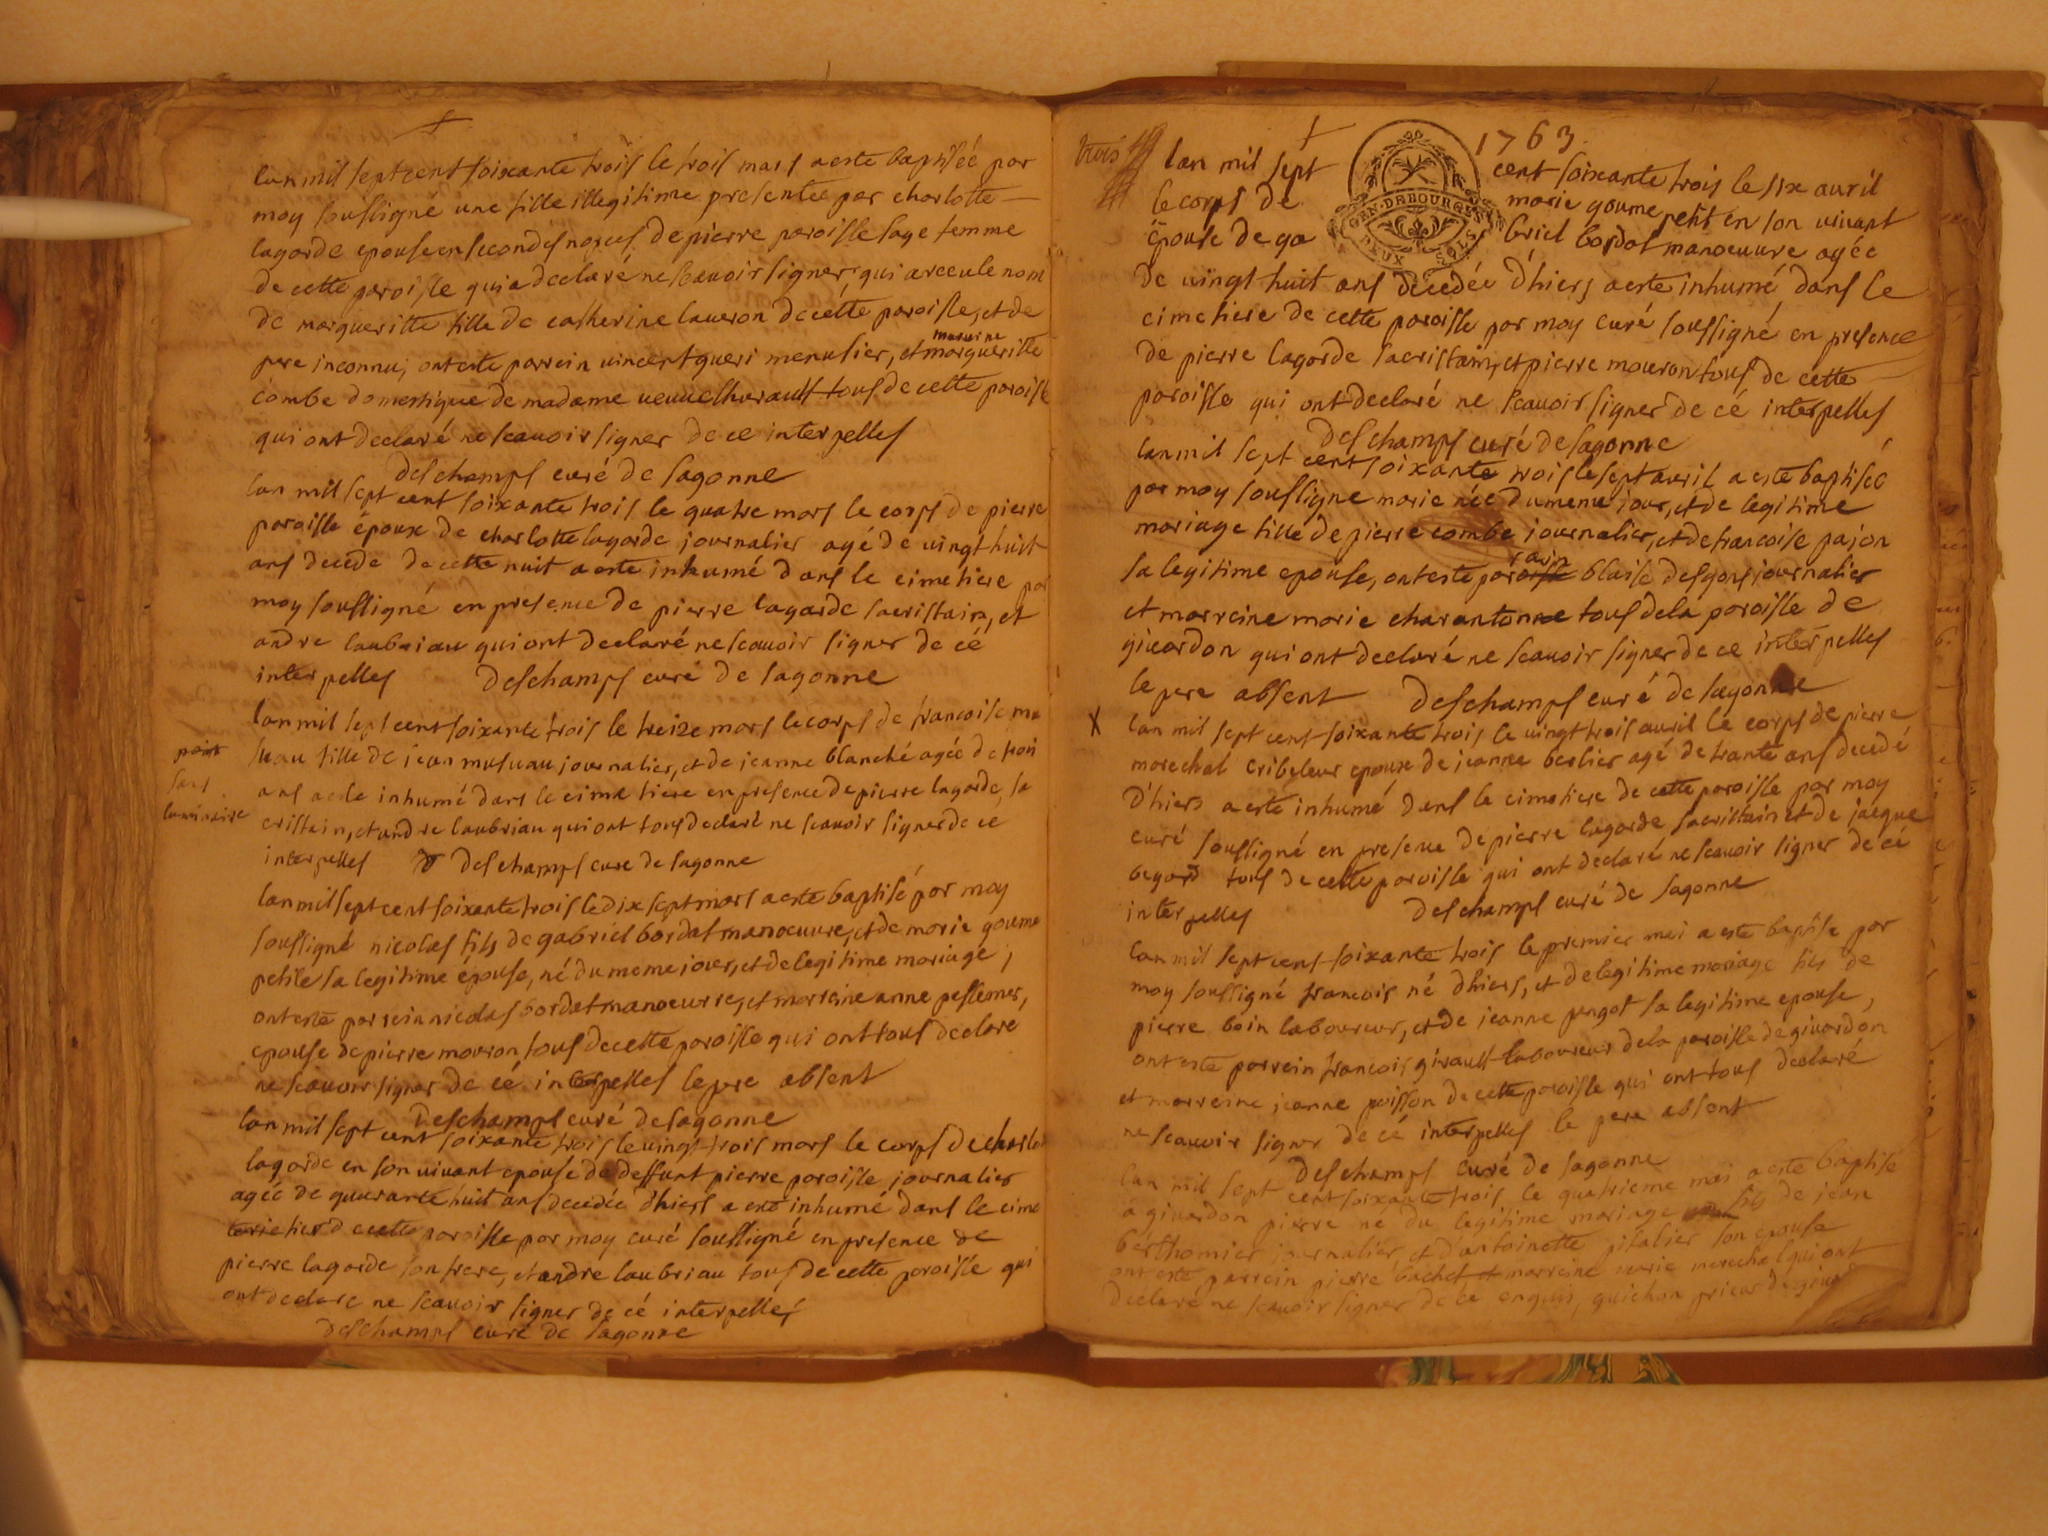 lan mil sept cent soixante trois le trois mars a este baptisée par
moy soussigné une fille illegitime presentée par charlotte
lagarde epouse en secondes noces de pierre paroisse sage femme
de cette paroisse qui a declaré ne scauoir signer, qui a receu le nom
de margueritte fille de catherine laueron de cette paroisse, et de
maraine
pere inconnu, ont este parrein uincent queri menusier, et margueritte
combe domestique de madame ueuue lherault tous de cette paroisse
qui ont declaré ne scauoir signer de ce interpelles
deschamps curé de sagonne
lan mil sept cent soixante trois le quatre mars le corps de pierre
paroisse époux de charlotte lagarde journalier agé de uingt huit
ans decede de cette nuit a este inhumé dans le cimetiere par
moy soussigné en presence de pierre lagarde sacristain, et
andre laubriau qui ont declaré ne scauoir signer de cé
interpelles deschamps curé de sagonne
lan mil sept cent soixante trois le treize mars le corps de francoise mu
suau fille de jean musuau journalier, et de jeanne blanché agée de troi
point
sans
luminaire
ans a este inhumé dans le cimetiere en presence de pierre lagarde, sa
cristain, et andre laubriau qui ont tous declaré ne scauoir signer de ce
interpelles deschamps cure de sagonne
lan mil sept cent soixante trois le dix sept mars a este baptisé par moy
soussigné nicolas fils de gabriel bordat manoeuure, et de marie goume
petite sa legitime épouse, né du meme jour, et de legitime mariage,
ont este parrein nicolas bordat manoeuvre, et marreine anne
epouse de pierre mouron tous de cette paroisse qui ont tous declare
ne scauoir signer de cé interpelles le pere absent
deschamps curé de sagonne
lan mil sept cent soixante trois le uingt trois mars le corps de charlot
lagarde en son uiuant epouse de deffunt pierre paroisse journalier
agée de quarante huit ans decedée d'hiers a este inhumé dans le cime
tiere de cette paroisse par moy curé soussigné en presence de
pierre lagarde son frere, et andre laubriau tous de cette paroisse qui
ont declare ne scauoir signer de cé interpelles
deschamps curé de sagonne
1763.
trois
lan mil sept cent soixante trois le six auril
le corps de marie goume petit en son uiuant
épouse de ga briel bordat manoeuure agée
GEN. DE BOURGES
DEUX SOLS
de uingt huit ans decedée d'hiers a este inhumé dans le
cimetiere de cette paroisse par moy curé soussigné en presence
de pierre lagarde sacristain, et pierre mouron tous de cette
paroisse qui ont declaré ne scauoir signer de cé interpelles
deschamps curé de sagonne
lan mil sept cent soixante trois le sept auril a este baptisée
par moy soussigne marie née du meme jour, et de legitime
mariage fille de pierre combe journalier, et de francoise pajon
rain
sa legitime epouse, ont este paroisse blaise desgons journalier
et marreine marie charantonne tous de la paroisse de
giuardon qui ont declaré ne scauoir signer de ce interpelles
le pere absent deschamps curé de sagonne
X
lan mil sept cent soixante trois le uingt trois auril le corps de pierre
marechal cribeleur epoux de jeanne berlier agé de trante ans decedé
d'hiers a este inhumé dans le cimetiere de cette paroisse par moy
curé soussigné en presence de pierre lagarde sacristain et de jacque
begard tous de cette paroisse qui ont declaré ne scauoir signer de cé
interpelles deschamps curé de sagonne
lan mil sept cent soixante trois le premier mai a este baptise par
moy soussigné francois né d'hiers, et de legitime mariage fils de
pierre boin laboureur, et de jeanne pengot sa legitime epouse,
ont este parrein francois girault laboureur de la paroisse de giuardon
et marreine jeanne poisson de cette paroisse qui ont tous declaré
ne scauoir signer de cé interpelles le pere absent
deschamps curé de sagonne
lan mil sept cent soixante trois le quatrieme mai a este baptisé
a giuardon pierre ne du legitime mariage fils de jean
berthomier journalier, et d'antoinette pitalier son epouse
ont este parrein pierre bachet et marreine marie marechal qui ont
declaré ne scauoir signer de ce enquis, guichon prieur de giuar